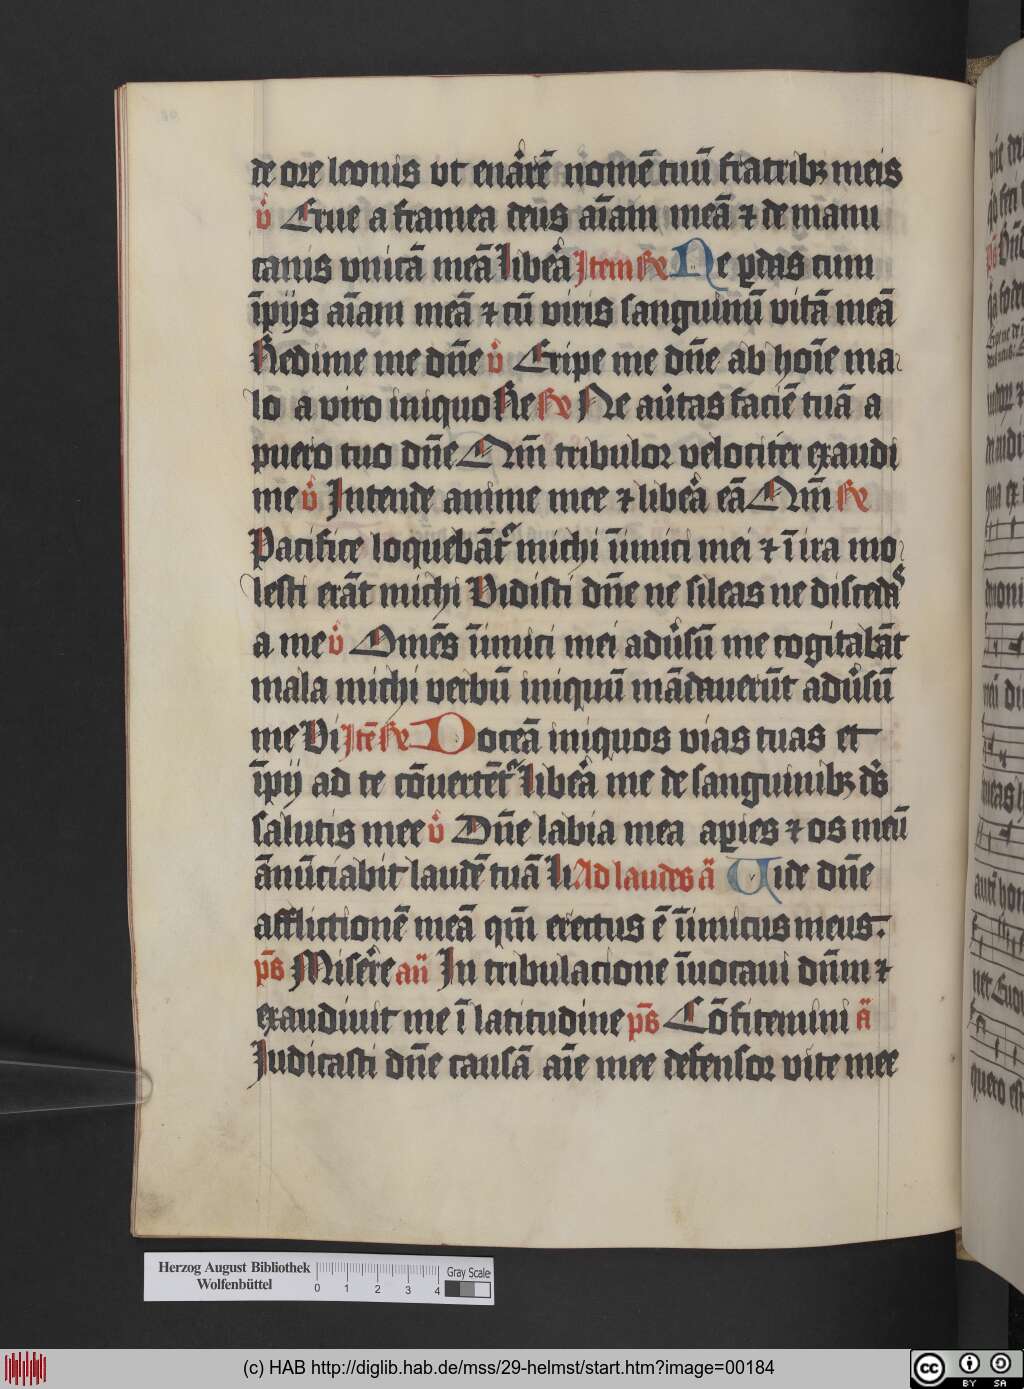 de ore leonis vt enarrē nomē tuū fratribꝫ meis
v̊ Erue a framea deus aīam meā ⁊ de manu
canis vnicā meā Libea Item R̵ Ne ꝑdas cum
īpijs aīam meā ⁊ cū viris sanguinū vitā meā
Redime me dn̄e v̊ Eripe me dn̄e ab hoīe ma-
lo a viro iniquo Re R̵ Ne au̓tas faciē tuā a
puero tuo dn̄e Qm̄ tribulor velociter exaudi
me v̊ Intende anime mee ⁊ libea eā Qm̄ R̵
Pacifice loquebāt᷑ michi īimici mei ⁊ ī ira mo-
lesti erāt michi Vidisti dn̄e ne sileas ne discedas
a me v̊ Omēs īimici mei adu̓sū me cogitabāt
mala michi verbū iniquū mādauerūt adu̓sū
me Vi Itē R̵ Doceā iniquos vias tuas et
īpij ad te cōuertēt᷑ Libea me de sanguinibꝫ ds̄
salutis mee v̊ Dn̄e labia mea aꝑies ⁊ os meū
ānūciabit laudē tuā Li Ad laudes ā Uide dn̄e
afflictionē meā qm̄ erectus ē īimicus meus.
ps̄ Misere an̄ In tribulacione īuocaui dn̄m ⁊
exaudiuit me ī latitudine ps̄ Cōfitemini ā
Iudicasti dn̄e causā aīe mee defensor vite mee
Herzog August Bibliothek
Wolfenbüttel
0 1 2 3 4
Gray Scale
(c) HAB http://diglib.hab.de/mss/29-helmst/start.htm?image=00184
cc BY SA